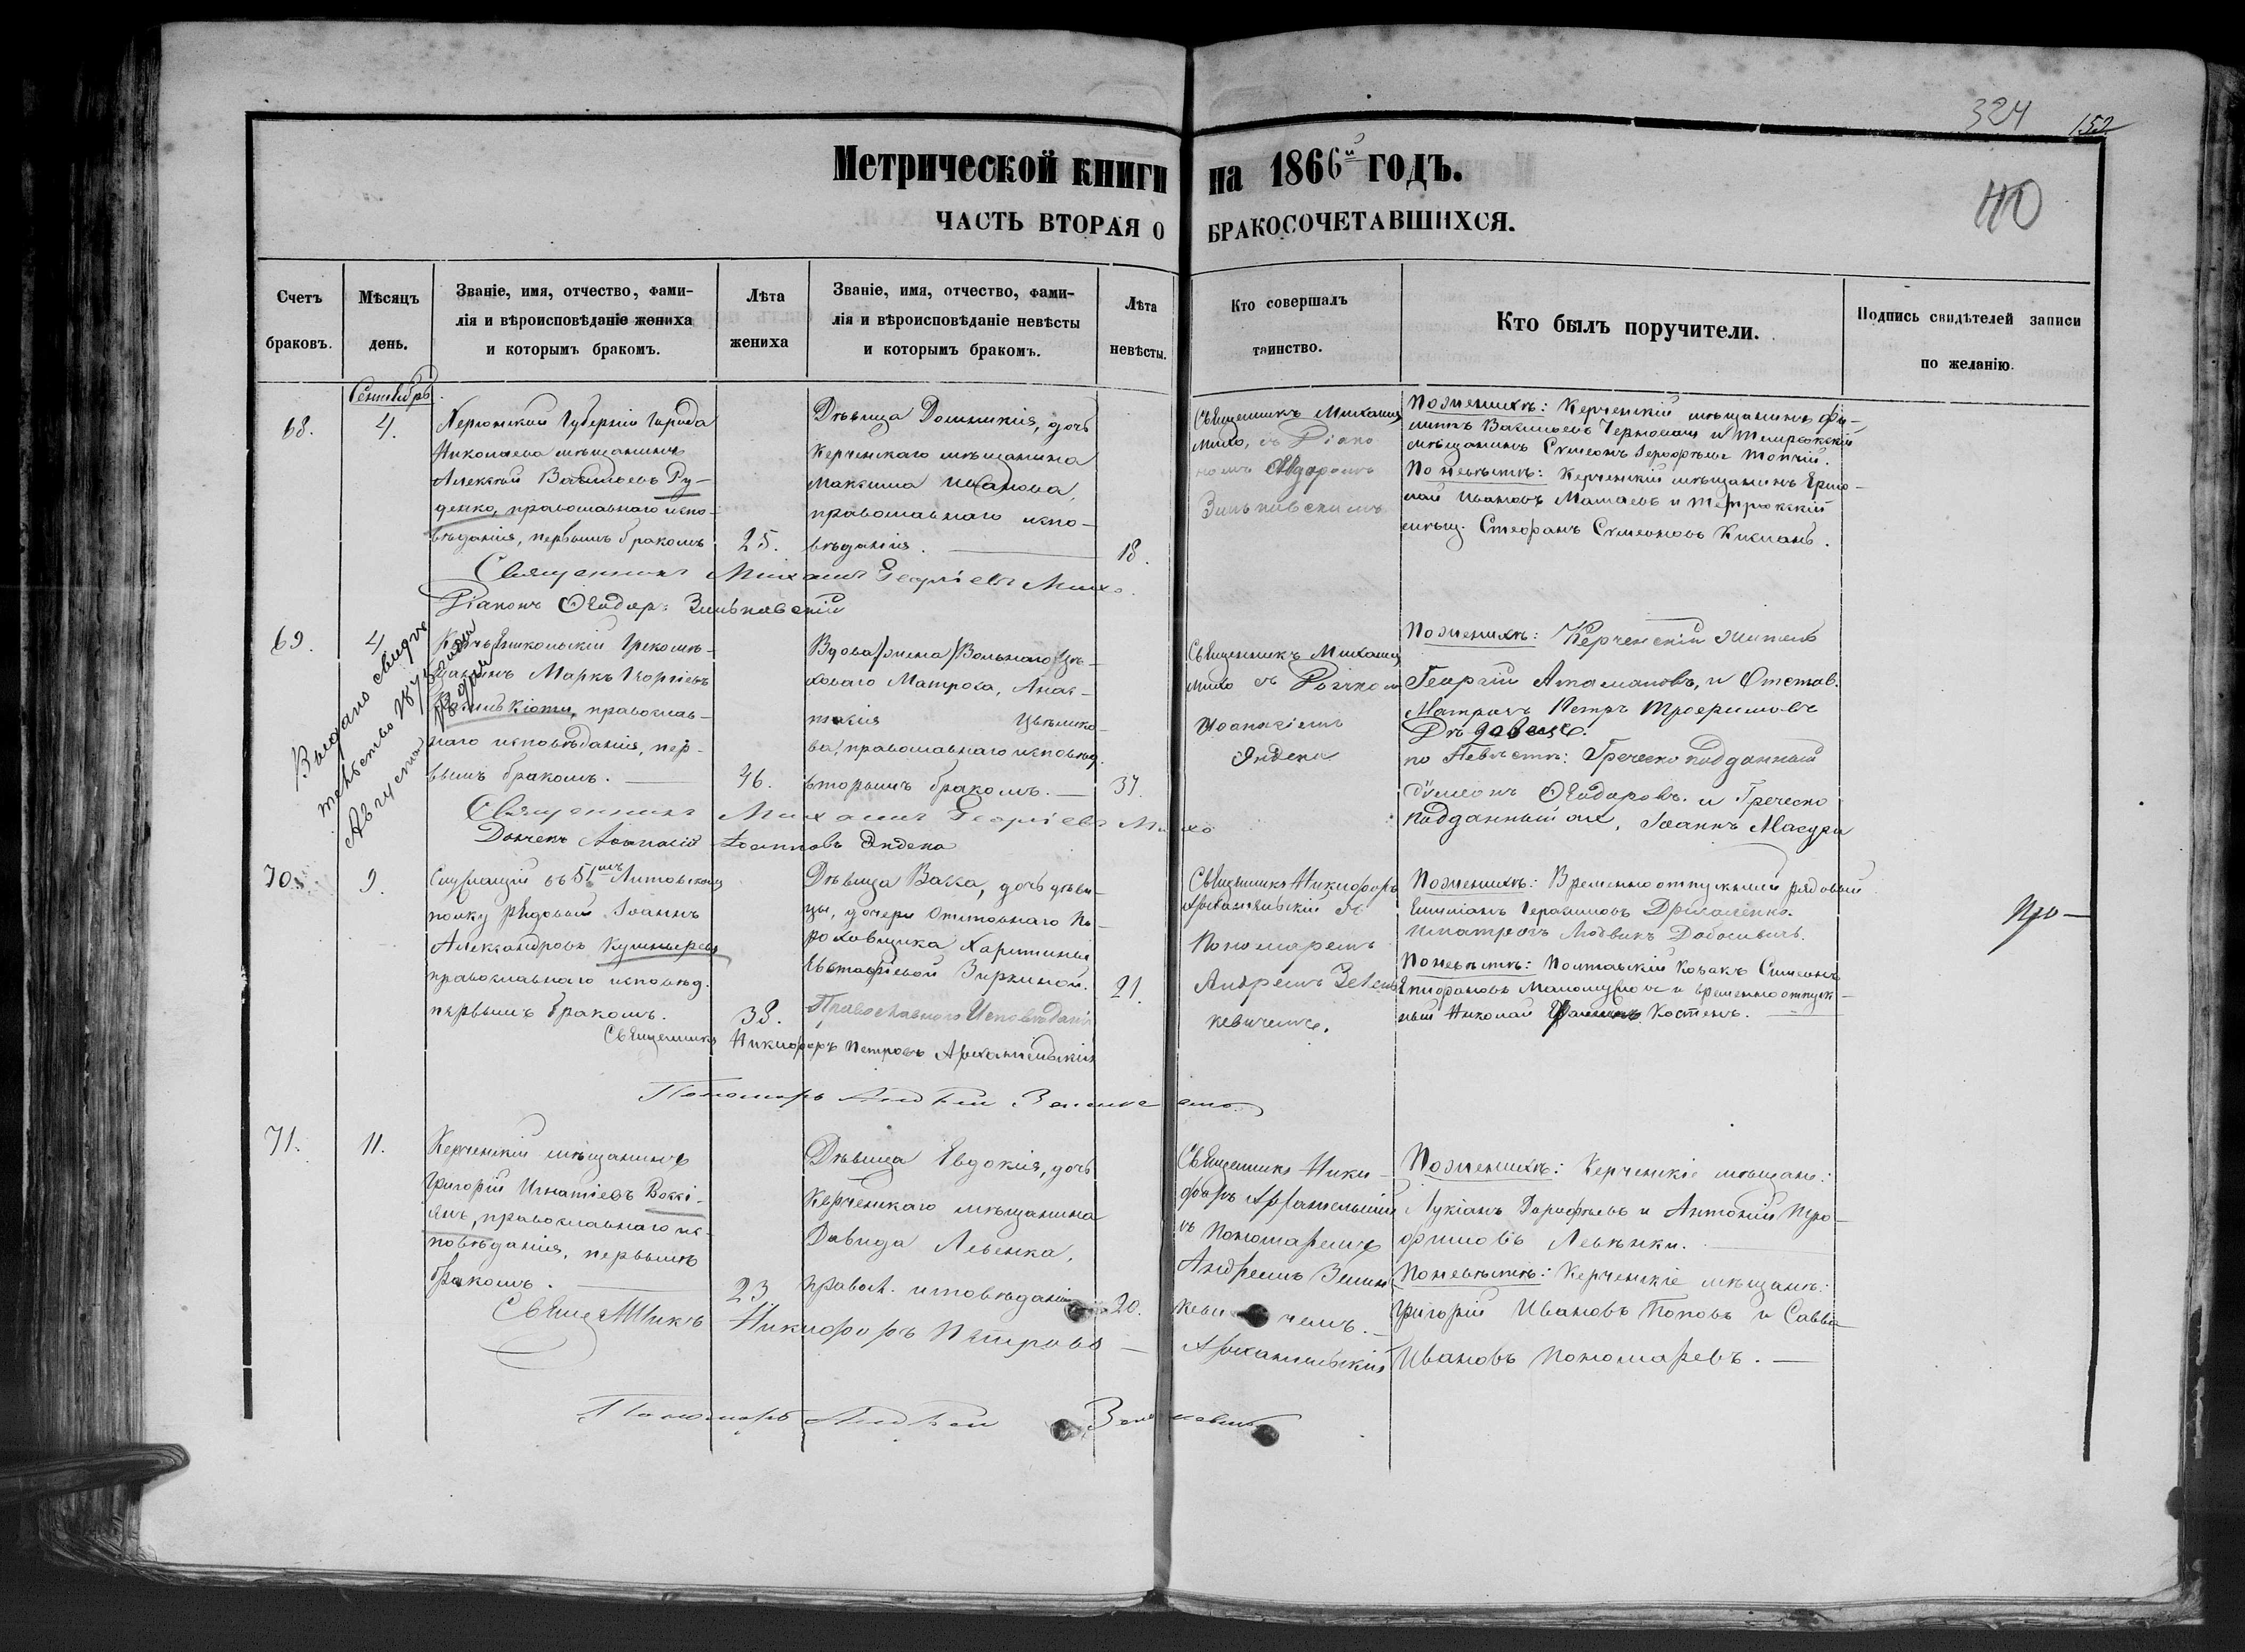 324 152
Метрической книги на 1866й годъ.
40
ЧАСТЬ ВТОРАЯ О БРАКОСОЧЕТАВШИХСЯ.
Счетъ браковъ.
Мѣсяцъ день.
Званіе, имя, отчество, фами-
лія и вѣроисповѣданіе жениха
и которымъ бракомъ.
Лѣта жениха
Званіе, имя, отчество, фами-
лія и вѣроисповѣданіе невѣсты
и которымъ бракомъ.
Лѣта невѣсты.
Кто совершалъ таинство.
Кто былъ поручители.
Подпись свидѣтелей записи
по желанію.
Сентябрь.
68.
4.
Херсонской Губерніи города
Николаева мѣщанинъ
Алексѣй Васильевъ Ру-
денко, православнаго испо-
вѣданія, первымъ бракомъ
25.
Дѣвица Домникія, дочь
Керченскаго мѣщанина
Максима Иванова,
православнаго испо-
вѣданія.
18.
Священникъ Михаилъ
Михо, съ Діако
номъ Ѳеодоромъ
Зиньковскимъ
По женихѣ: Керченскій мѣщанинъ Фи-
липъ Васильевъ и Темрюкскій
мѣщанинъ Сѵмеонъ
По невѣстѣ: Керченскій мѣщанинъ
Ивановъ и Темрюкскій
мѣщ. Стефанъ Сѵмеоновъ
Священникъ Михаилъ Георгіевъ Михо.
Діаконъ Ѳеодор: Зиньковскій
69.
4
Выдано свидѣ
тельство 1873 года
Августа 18 дня
Керчь Еникольскій Греко мѣ-
щанинъ Маркъ Георгіевъ
православ-
наго исповѣданія, пер-
вымъ бракомъ.
46.
Вдова /жена/ Вольнаго Цѣ-
ховаго Матроса, Анас-
тасія
ва, православнаго исповѣд.
вторымъ бракомъ.
37.
Священникъ Михаилъ
Михо съ Дьячкомъ
Аѳанасіемъ
Яндена
По женихѣ: Керченскій житель
Георгій Атамановъ, и Отстав.
Матросъ Петръ Трофимовъ
по Невѣстѣ: Греческо подданный
Сѵмеонъ Ѳеодоровъ. и Греческо
подданный Іоаннъ Масури
Священникъ Михаилъ Георгіевъ Михо
Дьячекъ Аѳанасій Іоанновъ Яндена
70.
9.
Служащій въ 51мъ Литовскомъ
полку рядовой Іоаннъ
Александровъ Кушныревъ
православнаго исповѣд.
первымъ бракомъ.
38.
Дѣвица Васса, дочь дѣви-
цы, дочери отставнаго По-
роховщика Харитины
Евстафіевой Зиркиной.
Православнаго Исповѣданія
21.
Священникъ Никифоръ
Архангельскій съ
Пономаремъ
Андреемъ Зелен
кевичемъ.
По женихѣ: Временно отпускный рядовый
Герасимовъ
и матросъ Людвикъ
По невѣстѣ: Полтавскій Козакъ Симеонъ
Епифановъ и временно отпуск-
ный Николай Костенъ.
Про-
Священникъ Никифоръ Петровъ Архангельскій
Пономарь Андрей Зеленкевичъ.
71.
11.
Керченскій мѣщанинъ
Григорій Игнатіевъ Воскі-
янъ, православнаго ис-
повѣданія, первымъ
бракомъ.
23.
Дѣвица Евдокія, дочь
Керченскаго мѣщанина
Давида Левенка,
правосл. исповѣданія
20.
Священникъ Ники-
форъ Архангельскій
съ Пономаремъ
Андреемъ Зелен
кевичемъ.
По женихѣ: Керченскіе мѣщане:
Лукіанъ Дорофѣевъ и Антоній Тро-
фимовъ Левенки.
По невѣстѣ: Керченскіе мѣщане:
Григорій Ивановъ Поповъ и Савва
Ивановъ Пономаревъ.
Священникъ Никифоръ Петровъ Архангельскій
Пономарь Андрей Зеленкевичъ